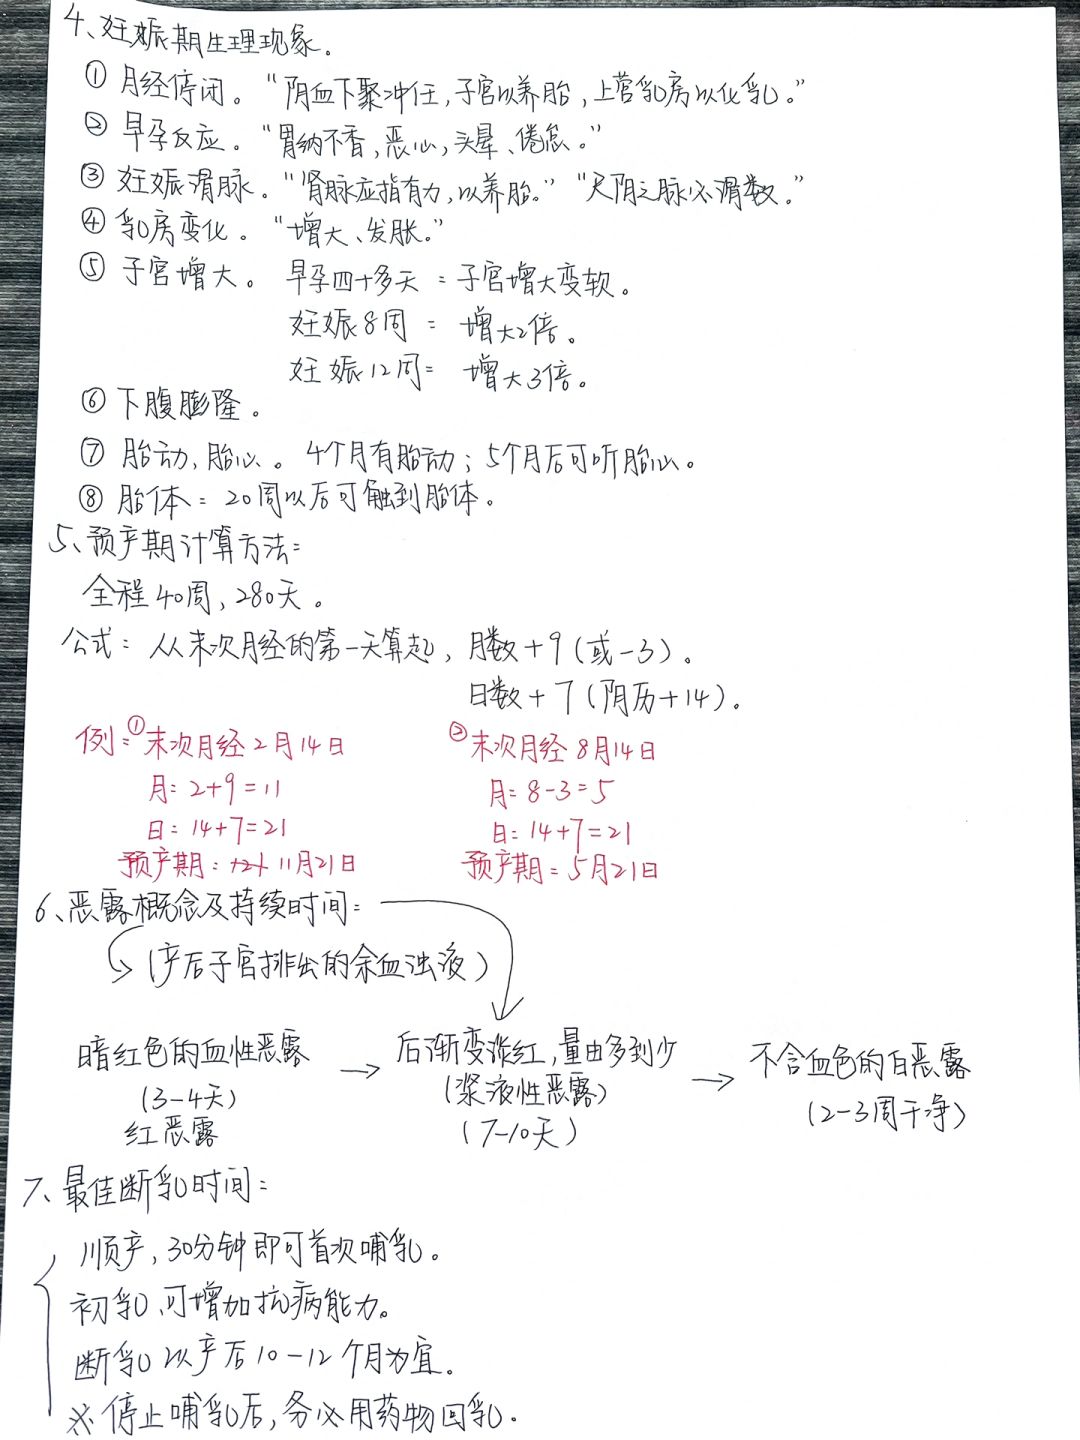 4、妊娠期生理现象。
① 月经停闭。“阴血下聚冲任，子宫以养胎，上营乳房以化乳。”
② 早孕反应。“胃纳不香，恶心，头晕、倦怠。”
③ 妊娠滑脉。“肾脉应指有力，以养胎。”“尺阴之脉必滑数。”
④ 乳房变化。“增大、发胀。”
⑤ 子宫增大。 早孕四十多天：子宫增大变软。
妊娠8周：增大2倍。
妊娠12周：增大3倍。
⑥ 下腹膨隆。
⑦ 胎动，胎心。4个月有胎动；5个月后可听胎心。
⑧ 胎体：20周以后可触到胎体。
5、预产期计算方法：
全程40周，280天。
公式：从末次月经的第一天算起，月数+9（或-3）。
日数+7（阴历+14）。
例：①末次月经2月14日 ②末次月经8月14日
月：2+9=11 月：8-3=5
日：14+7=21 日：14+7=21
预产期：11月21日 预产期：5月21日
6、恶露概念及持续时间：
（产后子宫排出的余血浊液）
暗红色的血性恶露 → 后渐变淡红，量由多到少 → 不含血色的白恶露
（3-4天） （浆液性恶露） （2-3周干净）
红恶露 （7-10天）
7、最佳断乳时间：
顺产，30分钟即可首次哺乳。
初乳、可增加抗病能力。
断乳以产后10-12个月为宜。
※停止哺乳后，务必用药物回乳。